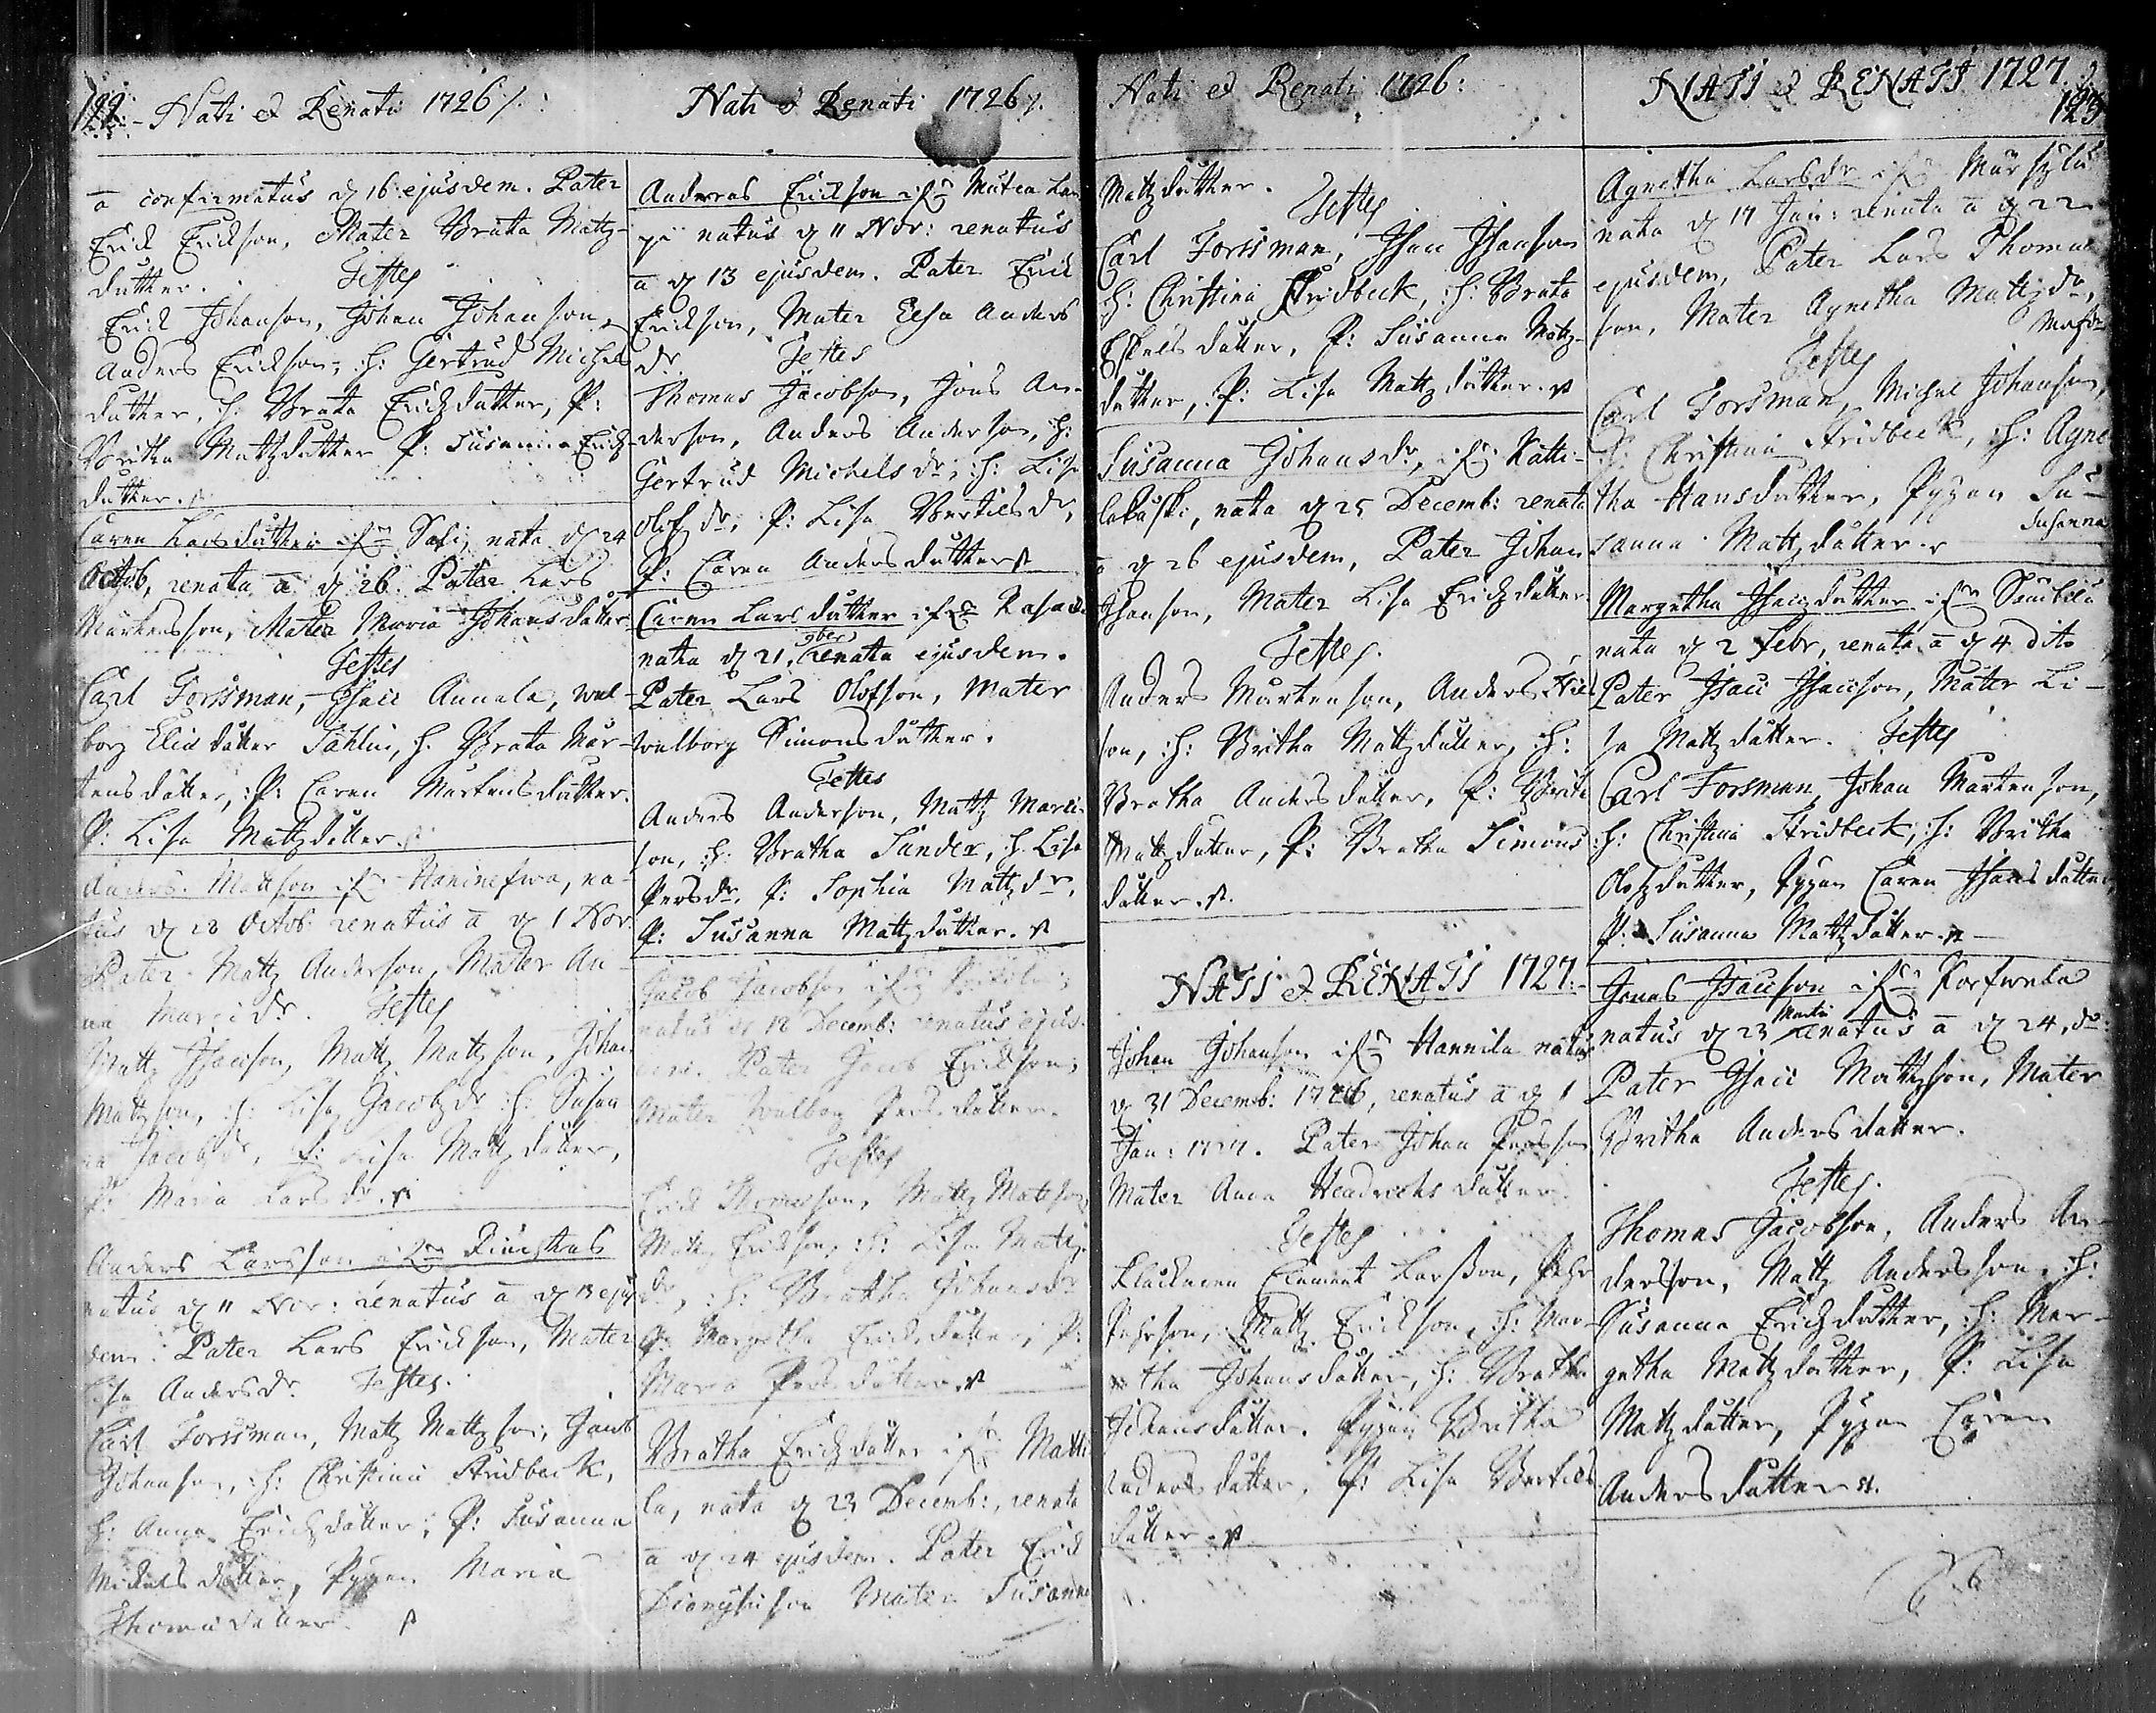 122. Nati et Renati 1726 /.
a confirmatus d 16 ejusdem. Pater
Erick Erickson, Mater Brita Mattz-
dutter.
Testes
Erick Johanson, Johan Johanson,
Anders Erickson, :h: Gertrud Michels
dutter, :h: Brata Erichzdutter, P:
Britha Mattzdutter P: Susanna Erichz
dutter.
Caren Larsdutter ifrn nata d 24
Octob, renata a d 26. Pater Lars
Martensson, Mater Maria Johansdotter
Testes
Carl Forssman, Isac Annala, wal-
borg Elis dotter, h. Brata Mår-
tensdotter, :P: Caren Martensdutter.
P: Lisa Mattzdotter.
Anders Mattson ifrn na-
tus d 28 Octob: renatus a d 1 Nov.
Pater Mattz Anderson, Mater An-
na dr. Testes
Mattz Isacson, Mattz Mattzson, Johan
Mattzson, :h: Lisa Jacobzdr :h: Susan
na Jacobzdr, P: Lisa Mattzdotter,
P: Maria Larsdr.
Anders Larsson ifrn
natus d 11 Nov: renatus a d 13 ejus
dem. Pater Lars Erickson, Mater
Lisa Andersdr. Testes.
Carl Forssman, Mattz Mattzson, Jacob
Johanson, :h: Christina Stridbeck,
h: Anna Erichzdotter; P: Susanna
Michelsdotter, Pygan Maria
Thomædotter.
Nati et Renati 1726 /.
Andreas Erickson ifrn
natus d 11 Nov: renatus
a d 13 ejusdem. Pater Erick
Erickson, Mater Elsa Anders
dr. Testes
Thomas Jacobson, Jons An-
derson, Anders Anderson, :h:
Gertrud Michelsdr, :h: Lisa
Olofzdr, P: Lisa Bertilsdr,
P: Caren Andersdutter
Caren Larsdutter ifrn
nata d 21. 9ber renata ejusdem.
Pater Lars Olofson, Mater
walborg Simonsdutter.
Testes
Anders Anderson, Mattz
son, :h: Bratha Sunder, h. Lisa
Persdr. P: Sophia Mattzdr,
P: Susanna Mattzdutter.
Jacob Jacobson ifrn
natus d 18 Decemb: renatus ejus-
dem. Pater Jacob Erickson;
Mater Walborg Persdotter.
Testes
Erick Thomasson, Mattz Mattzson
Mattz Erickson, :h: Lisa Mattz
dr, :h: Bratha Johansdr
P: Margetha Erichzdotter, P:
Maria Persdotter.
Bratha Erichzdotter ifrn
la, nata d 23 Decemb:, renata
a d 24 ejusdem. Pater Erick
Dionysiison Mater Susanna
Nati et Renati 1726:
Mattzdutter.
Testes
Carl Forssman, Isac Isacson
h: Christina Stridbeck, :h: Brata
Eskelsdutter, P: Susanna Mattz-
dutter, :P: Lisa Mattzdutter.
Susanna Johansdr, ifrn
nata d 25 Decemb: renata
a d 26 ejusdem, Pater Johan
Isacson, Mater Lisa Erichzdotter.
Testes.
Anders Martenson, Anders
son, :h: Britha Mattzdutter, :h:
Bratha Andersdotter, P: Brita
Mattzdutter, P: Bratha Simons
dotter.
NATI et RENATI 1727:
Johan Johanson ifrn Hannila natus
d 31 Decemb: 1726, renatus a d 1
Jan: 1727. Pater Johan Persson
Mater Anna Hendrichs dutter.
Testes
Klockaren Clement Larsson, Pehr
Pehrson, Mattz Erickson, :h: Mar-
tha Johansdotter, h: Bratha
Johansdutter. Pygan Britha
Andersdotter, P: Lisa Bertils
dotter.
NATI et RENATI 1727.
123
Agnetha Larsdr ifrn
nata d 17 Jan: renata a d 22
ejusdem, Pater Lars Thomas
son, Mater Agnetha Mattzdr,
Testes
Carl Forssman, Michel Johanson,
:h: Christina Stridbeck, :h: Agne
tha Hansdutter, Pygan Su-
sanna Mattzdutter.
Susanna
Margetha Isaczdutter ifrn
nata d 2 Febr, renata a d 4 dito
Pater Isac Isacson, Mater Li-
sa Mattzdutter. Testes
Carl Forssman, Johan Martenson,
:h: Christina Stridbeck, :h: Britha
Olofzdutter, Pygan Caren Isacsdutter
P: Susanna Mattzdutter.
Jonas Isacson ifrn
natus d 23 Martii renatus a d 24, do:
Pater Isac Mattzson, Mater
Britha Andersdutter.
Testes.
Thomas Jacobson, Anders An-
dersson, Mattz Andersson, :h:
Susanna Erichzdutter, :h: Mar-
getha Mattzdutter, P: Lisa
Mattzdutter, Pygan Caren
Andersdutter.